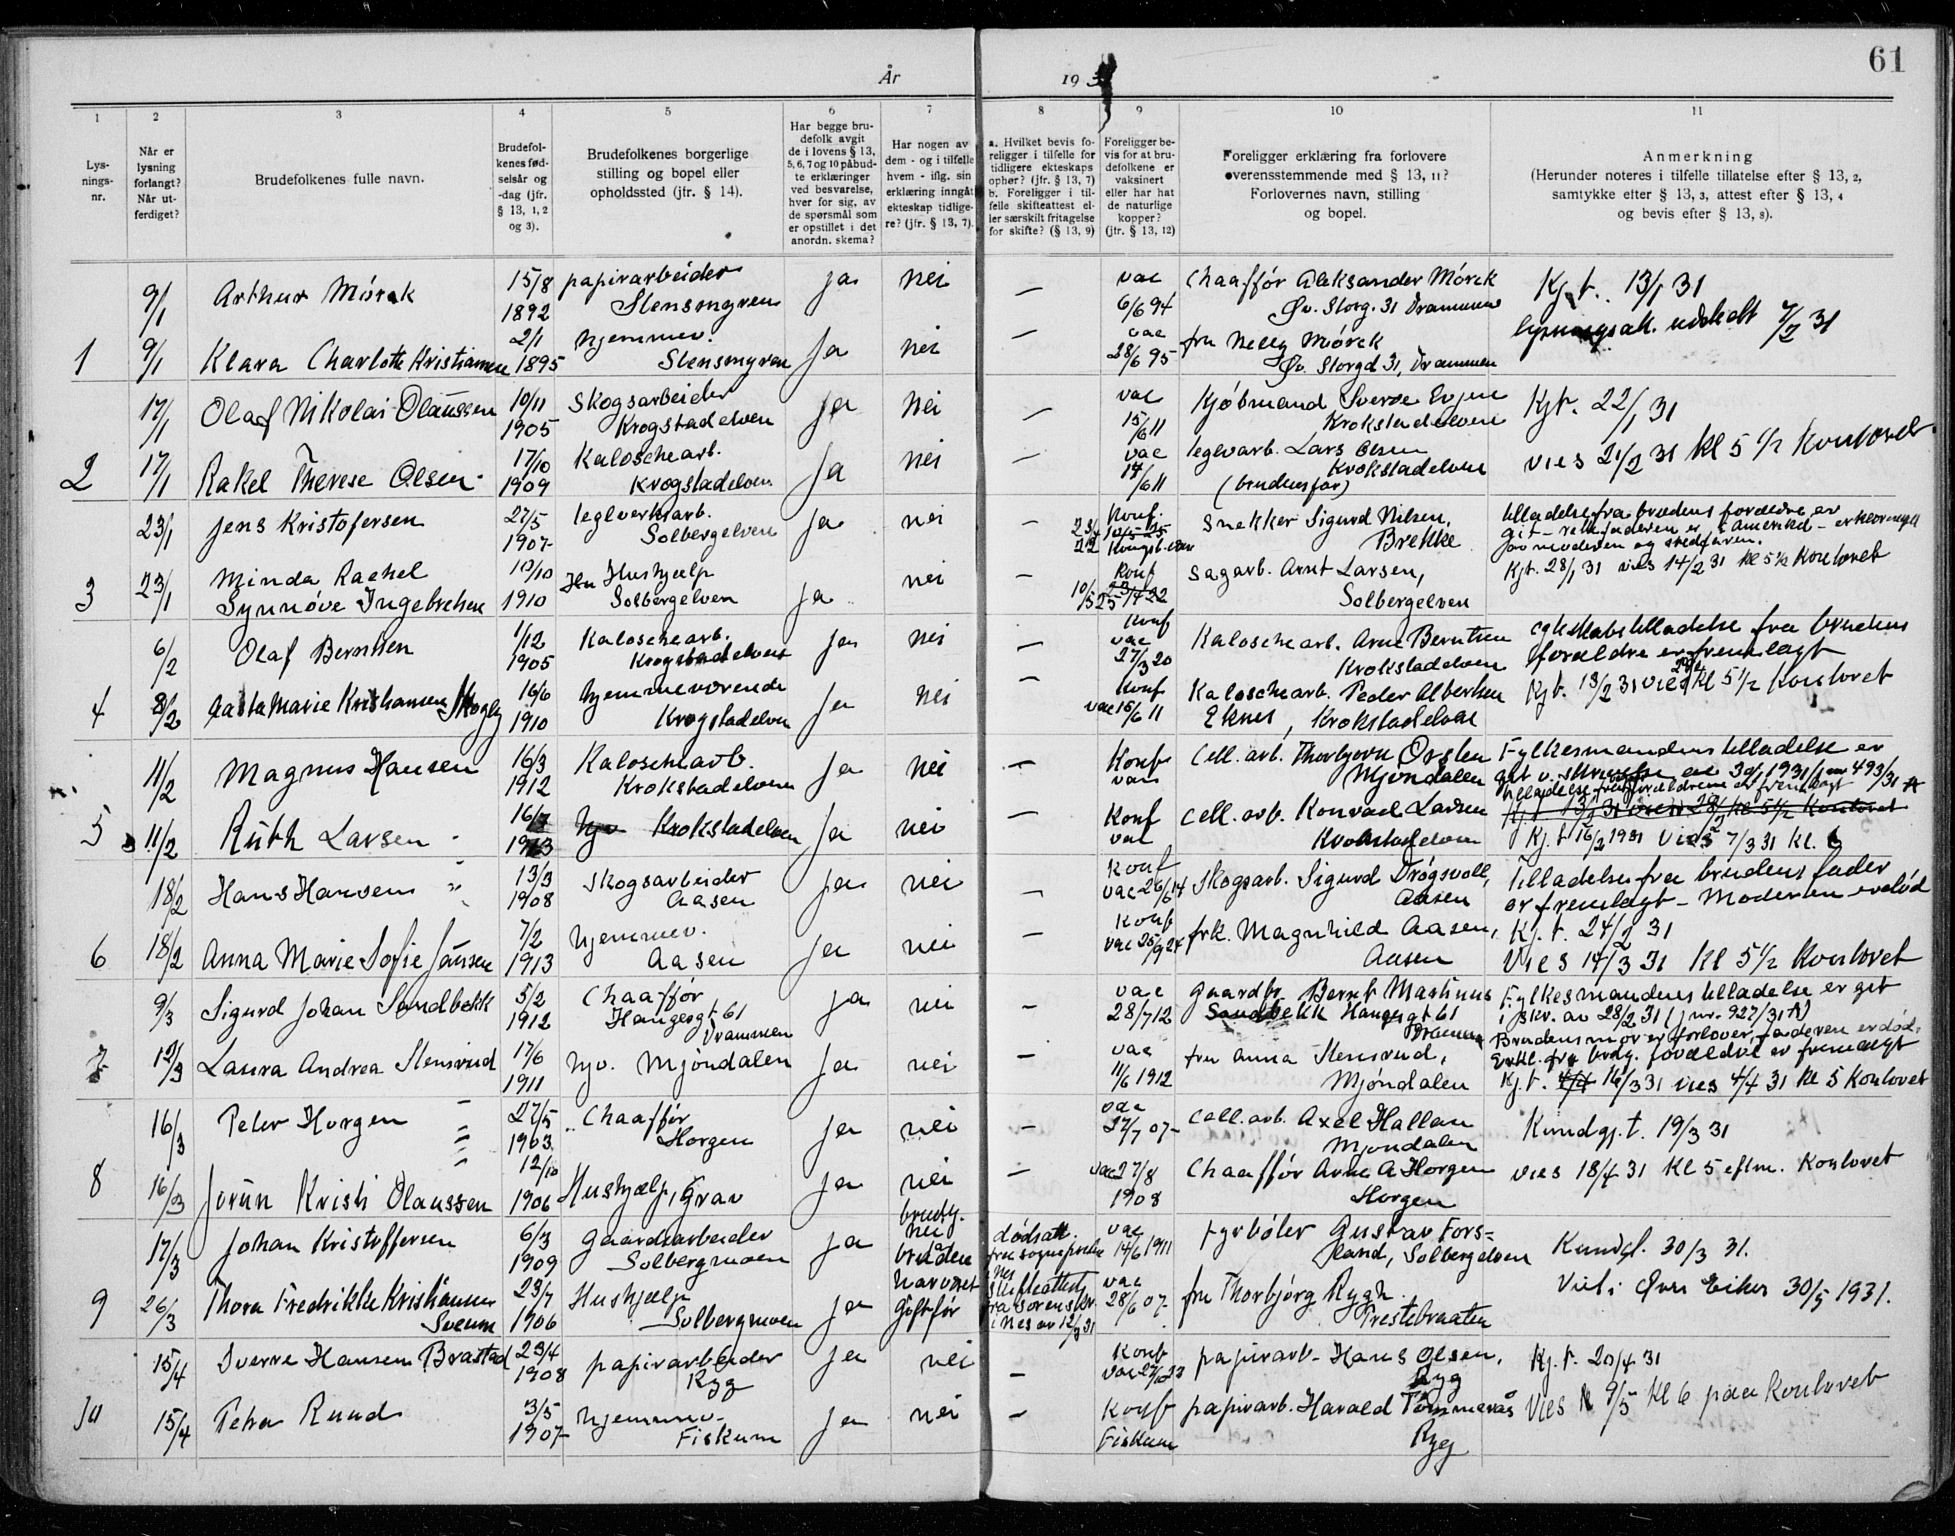 61
År 193
1 2 3 4 5 6 7 8 9 10 11
Lys-
nings-
nr.
Når er
lysning
forlangt?
Når ut-
ferdiget?
Brudefolkenes fulle navn.
Brudefol-
kenes fød-
selsår og
-dag (jfr.
§ 13, 1, 2
og 3).
Brudefolkenes borgerlige
stilling og bopel eller
opholdssted (jfr. § 14).
Har begge bru-
defolk avgit
de i lovens § 13,
5, 6, 7 og 10 påbud-
te erklæringer
ved besvarelse,
hver for sig, av
de spørsmål som
er opstillet i det
anordn. skema?
Har nogen av
dem - og i tilfelle
hvem - iflg. sin
erklæring inngåt
ekteskap tidlige-
re? (jfr. § 13, 7).
a. Hvilket bevis fo-
religger i tilfelle for
tidligere ekteskaps
ophør? (jfr. § 13, 7)
b. Foreligger i til-
felle skifteattest el-
ler særskilt fritagelse
for skifte? (§ 13, 9)
Foreligger be-
vis for at bru-
defolkene er
vaksinert
eller har hat
de naturlige
kopper?
(jfr. § 13, 12)
Foreligger erklæring fra forlovere
overensstemmende med § 13, 11?
Forlovernes navn, stilling
og bopel.
Anmerkning
(Herunder noteres i tilfelle tillatelse efter § 13, 2,
samtykke efter § 13, 3, attest efter § 13, 4
og bevis efter § 13, 8).
9/1 Arthur Mörck 15/8 1892 papirarbeider Stensmyren ja nei — vac 6/6 94 Chaaffør Aleksander Mörck Øv. Storg. 31 Drammen Kj. t. 13/1 31
lysningsatt. utstedt 7/2 31
1 9/1 Klara Charlotte Kristiansen 2/1 1895 hjemmev. Stensmyren ja nei — vac 28/6 95 fru Nelly Mörck Øv. Storgd 31, Drammen
17/1 Olaf Nikolai Olaussen 10/11 1905 Skogsarbeider Krogstadelven ja nei — vac 15/6 11 Kjøbmand Sverre Evjen Krokstadelven Kjt. 22/1 31
2 17/1 Rakel Therese Olsen 17/10 1909 Kaloschearb. Krogstadelven ja nei — vac 14/6 11 teglvarb. Lars Olsen Krokstadelven (brudens far) vies 21/2 31 kl 5 1/2 Kontoret
23/1 Jens Kristofersen 27/5 1907 teglverksarb. Solbergelven ja nei — Konf. Snekker Sigurd Nilsen, Brekke
tilladelse fra brudens forældre er
git
3 23/1 Minda Rachel Synnöve Ingebretsen 10/10 1910 Hushjælp Solbergelven ja nei — Konf 10/5 25 Sagarb. Arnt Larsen, Solbergelven
Kjt. 28/1 31 vies 14/2 31 kl 5 1/2 Kontoret
6/2 Olaf Berntsen 1/12 1905 Kaloschearb. Krogstadelven ja nei — Konf vac 27/3 20 Kaloschearb. Arne Berntsen Krokstadelven
egteskabstilladelse fra brudens
forældre er fremlagt
4 8/2 Aasta Marie Kristiansen Skogly 16/6 1910 hjemmeværende Krogstadelven ja nei — Konf vac 16/6 11 Kaloschearb. Peder Albertsen Eknes, Krokstadelven
Kj. t. 13/2 31 vies kl 5 1/2 Kontoret
11/2 Magnus Hansen 16/3 1912 Kaloschearb. Krokstadelven ja nei — Konf vac Cell. arb. Thorbjørn Ørslen Mjøndalen
Fylkesmandens tilladelse er
git v. skrivelse av 30/1 1931 493/31 A
tilladelse fra forældrene er fremlagt
5 11/2 Ruth Larsen 16/7 1913 hjv Krokstadelven ja nei — Konf vac Cell. arb. Konrad Larsen Krokstadelven
Kj. t 16/2 1931 Vies 7/3 31 kl. 6
18/2 Hans Hansen 13/3 1908 Skogsarbeider Aasen ja nei — Konf vac 26/6 14 Skogsarb. Sigurd Trøgsvoll, Aasen
Tilladelse fra brudens fader
er fremlagt – Moderen er død
6 18/2 Anna Marie Sofie Jansen 7/2 1913 hjemmev. Aasen ja nei — Konf vac 25/9 24 frk. Magnhild Aasen, Aasen
Kj. t. 24/2 31
Vies 14/3 31 kl 5 1/2 Kontoret
9/3 Sigurd Johan Sandbekk 5/2 1912 Chaaffør Hangesgt 61 Drammen ja nei — vac 28/7 12 gaardbr. Bernt Martinus Sandbekk Haugesgt 61 Drammen
Fylkesmandens tilladelse er git
i skr. av 28/2 31 (jnr. 927/31 A)
Brudens mor er forlover, faderen er død.
7 12/3 Laura Andrea Stensrud 17/6 1911 hjv. Mjöndalen ja nei — vac 11/6 1912 fru Anna Stensrud, Mjøndalen
Erkl. fra brudg. forældre er fremlagt
Kj. t. 16/3 31 vies 4/4 31 kl 5 Kontoret
16/3 Peter Horgen 27/5 1903 Chaaffør Horgen ja nei — vac 27/7 07 Cell. arb. Axel Hallan Mjøndalen Kundgj. t. 19/3 31
8 16/3 Jorun Kristi Olaussen 12/10 1906 Hushjælp, Grav ja nei — vac 27/8 1908 Chaaffør Arne A Horgen Horgen vies 18/4 31 kl 5 eftm. Kontoret
17/3 Johan Kristoffersen 6/3 1909 Gaardsarbeider Solbergmoen ja brudg. nei vac 14/6 1911 Fyrbøter Gustav Fors= land, Solbergelven Kundgj. 30/3 31.
9 26/3 Thora Fredrikke Kristiansen Sveum 23/7 1906 Hushjælp Solbergmoen ja bruden har vært gift før dødsatt. fra sogneprest Nes Skifteattest fra sorenskr. i Nes av 12/3 31 vac 28/6 07 fru Thorbjørg Rygh. Prestebraaten Viet i Øvre Eiker 30/5 1931.
15/4 Sverre Hansen Brastad 23/4 1908 papirarbeider Ryg ja nei — Konf papirarb. Hans Olsen, Ryg Kj. t. 20/4 31
10 15/4 Petra Ruud 3/5 1907 hjemmev. Fiskum ja nei — Konf Fiskum papirarb. Harald Tømmerås Ryg Vies 9/5 kl 6 paa Kontoret